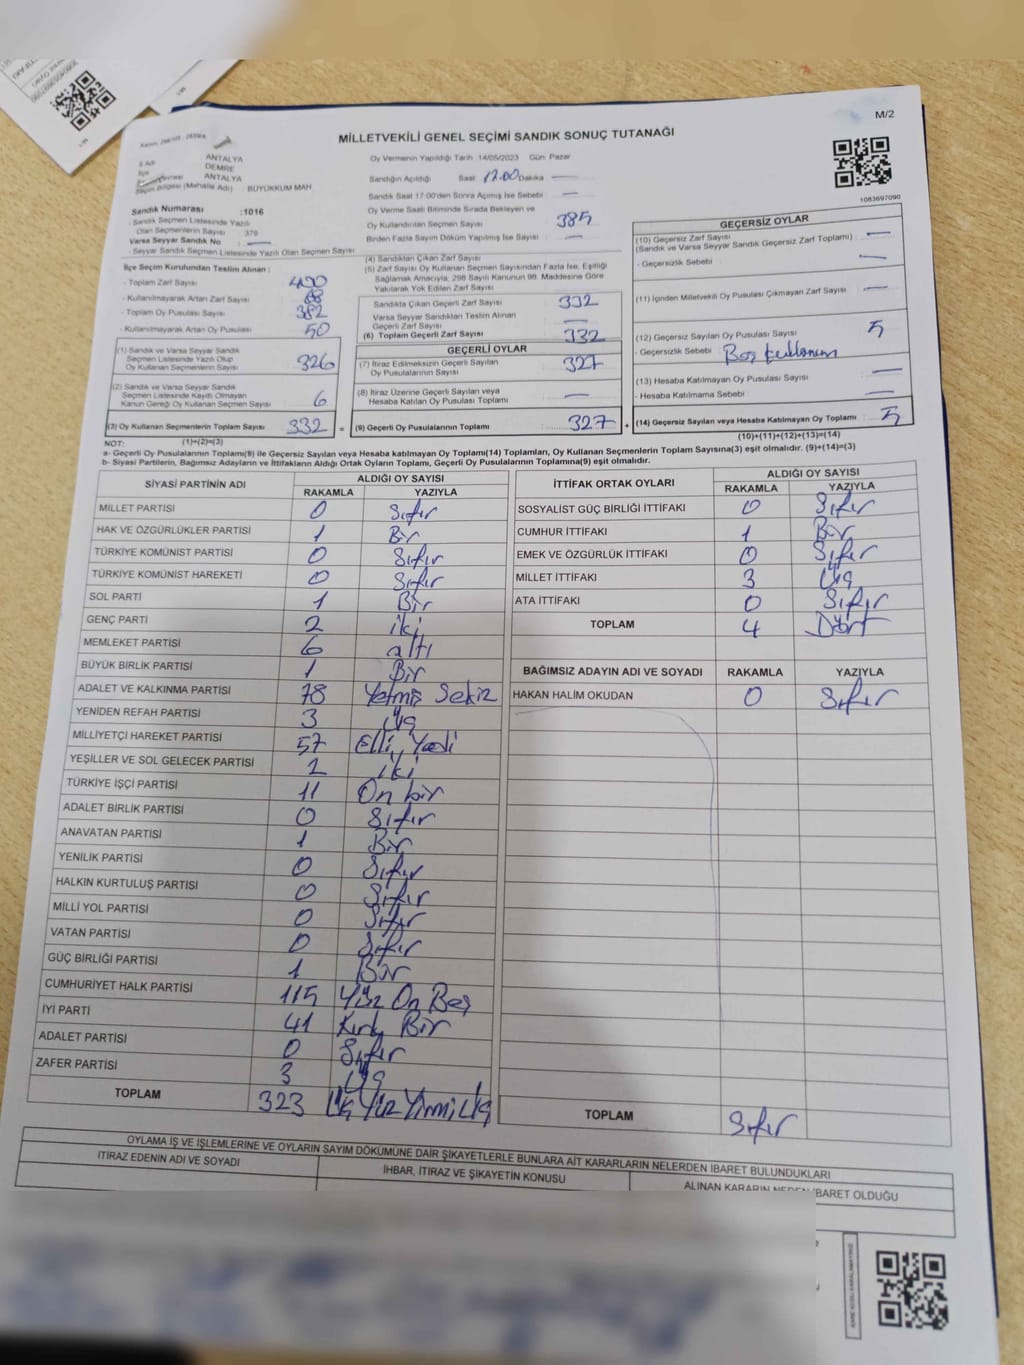 M/2
MİLLETVEKİLİ GENEL SEÇİMİ SANDIK SONUÇ TUTANAĞI
1083697090
ANTALYA
DEMRE
ANTALYA
Seçim Bölgesi (Mahalle Adı) BÜYÜKKUM MAH
Oy Vermenin Yapıldığı Tarih 14/05/2023 Gün: Pazar
Sandığın Açıldığı Saat 17.00 Dakika —
Sandık Saat 17:00'den Sonra Açılmış İse Sebebi —
Oy Verme Saati Bitiminde Sırada Bekleyen ve
Oy Kullandırılan Seçmen Sayısı 385
Birden Fazla Sayım Döküm Yapılmış İse Sayısı —
Sandık Numarası :1016
- Sandık Seçmen Listesinde Yazılı
Olan Seçmenlerin Sayısı 379
Varsa Seyyar Sandık No —
- Seyyar Sandık Seçmen Listesinde Yazılı Olan Seçmen Sayısı
İlçe Seçim Kurulundan Teslim Alınan :
- Toplam Zarf Sayısı 400
- Kullanılmayarak Artan Zarf Sayısı 68
- Toplam Oy Pusulası Sayısı 382
- Kullanılmayarak Artan Oy Pusulası 50
(1) Sandık ve Varsa Seyyar Sandık
Seçmen Listesinde Yazılı Olup
Oy Kullanan Seçmenlerin Sayısı 326
(2) Sandık ve Varsa Seyyar Sandık
Seçmen Listesinde Kayıtlı Olmayan
Kanun Gereği Oy Kullanan Seçmen Sayısı 6
(3) Oy Kullanan Seçmenlerin Toplam Sayısı 332 =
(1)+(2)=(3)
(4) Sandıktan Çıkan Zarf Sayısı
(5) Zarf Sayısı Oy Kullanan Seçmen Sayısından Fazla İse, Eşitliği
Sağlamak Amacıyla, 298 Sayılı Kanunun 98. Maddesine Göre
Yakılarak Yok Edilen Zarf Sayısı
Sandıkta Çıkan Geçerli Zarf Sayısı 332
Varsa Seyyar Sandıktan Teslim Alınan
Geçerli Zarf Sayısı —
(6) Toplam Geçerli Zarf Sayısı 332
GEÇERLİ OYLAR
(7) İtiraz Edilmeksizin Geçerli Sayılan
Oy Pusulalarının Sayısı 327
(8) İtiraz Üzerine Geçerli Sayılan veya
Hesaba Katılan Oy Pusulası Toplamı —
(9) Geçerli Oy Pusulalarının Toplamı 327 +
GEÇERSİZ OYLAR
(10) Geçersiz Zarf Sayısı —
(Sandık ve Varsa Seyyar Sandık Geçersiz Zarf Toplamı)
- Geçersizlik Sebebi —
(11) İçinden Milletvekili Oy Pusulası Çıkmayan Zarf Sayısı —
(12) Geçersiz Sayılan Oy Pusulası Sayısı 5
- Geçersizlik Sebebi Boş kullanım
(13) Hesaba Katılmayan Oy Pusulası Sayısı —
- Hesaba Katılmama Sebebi —
(14) Geçersiz Sayılan veya Hesaba Katılmayan Oy Toplamı 5
(10)+(11)+(12)+(13)=(14)
NOT:
a- Geçerli Oy Pusulalarının Toplamı(9) ile Geçersiz Sayılan veya Hesaba katılmayan Oy Toplamı(14) Toplamları, Oy Kullanan Seçmenlerin Toplam Sayısına(3) eşit olmalıdır. (9)+(14)=(3)
b- Siyasi Partilerin, Bağımsız Adayların ve İttifakların Aldığı Ortak Oyların Toplamı, Geçerli Oy Pusulalarının Toplamına(9) eşit olmalıdır.
SİYASİ PARTİNİN ADI ALDIĞI OY SAYISI
RAKAMLA YAZIYLA
MİLLET PARTİSİ 0 Sıfır
HAK VE ÖZGÜRLÜKLER PARTİSİ 1 Bir
TÜRKİYE KOMÜNİST PARTİSİ 0 Sıfır
TÜRKİYE KOMÜNİST HAREKETİ 0 Sıfır
SOL PARTİ 1 Bir
GENÇ PARTİ 2 iki
MEMLEKET PARTİSİ 6 altı
BÜYÜK BİRLİK PARTİSİ 1 Bir
ADALET VE KALKINMA PARTİSİ 78 Yetmiş Sekiz
YENİDEN REFAH PARTİSİ 3 Üç
MİLLİYETÇİ HAREKET PARTİSİ 57 Elli Yedi
YEŞİLLER VE SOL GELECEK PARTİSİ 2 iki
TÜRKİYE İŞÇİ PARTİSİ 11 On bir
ADALET BİRLİK PARTİSİ 0 Sıfır
ANAVATAN PARTİSİ 1 Bir
YENİLİK PARTİSİ 0 Sıfır
HALKIN KURTULUŞ PARTİSİ 0 Sıfır
MİLLİ YOL PARTİSİ 0 Sıfır
VATAN PARTİSİ 0 Sıfır
GÜÇ BİRLİĞİ PARTİSİ 1 Bir
CUMHURİYET HALK PARTİSİ 115 Yüz On Beş
İYİ PARTİ 41 Kırk Bir
ADALET PARTİSİ 0 Sıfır
ZAFER PARTİSİ 3 Üç
TOPLAM 323 Üç Yüz Yirmi Üç
İTTİFAK ORTAK OYLARI ALDIĞI OY SAYISI
RAKAMLA YAZIYLA
SOSYALİST GÜÇ BİRLİĞİ İTTİFAKI 0 Sıfır
CUMHUR İTTİFAKI 1 Bir
EMEK VE ÖZGÜRLÜK İTTİFAKI 0 Sıfır
MİLLET İTTİFAKI 3 Üç
ATA İTTİFAKI 0 Sıfır
TOPLAM 4 Dört
BAĞIMSIZ ADAYIN ADI VE SOYADI RAKAMLA YAZIYLA
HAKAN HALİM OKUDAN 0 Sıfır
TOPLAM Sıfır
OYLAMA İŞ VE İŞLEMLERİNE VE OYLARIN SAYIM DÖKÜMÜNE DAİR ŞİKAYETLERLE BUNLARA AİT KARARLARIN NELERDEN İBARET BULUNDUKLARI
İTİRAZ EDENİN ADI VE SOYADI İHBAR, İTİRAZ VE ŞİKAYETİN KONUSU ALINAN KARARIN NEDEN İBARET OLDUĞU